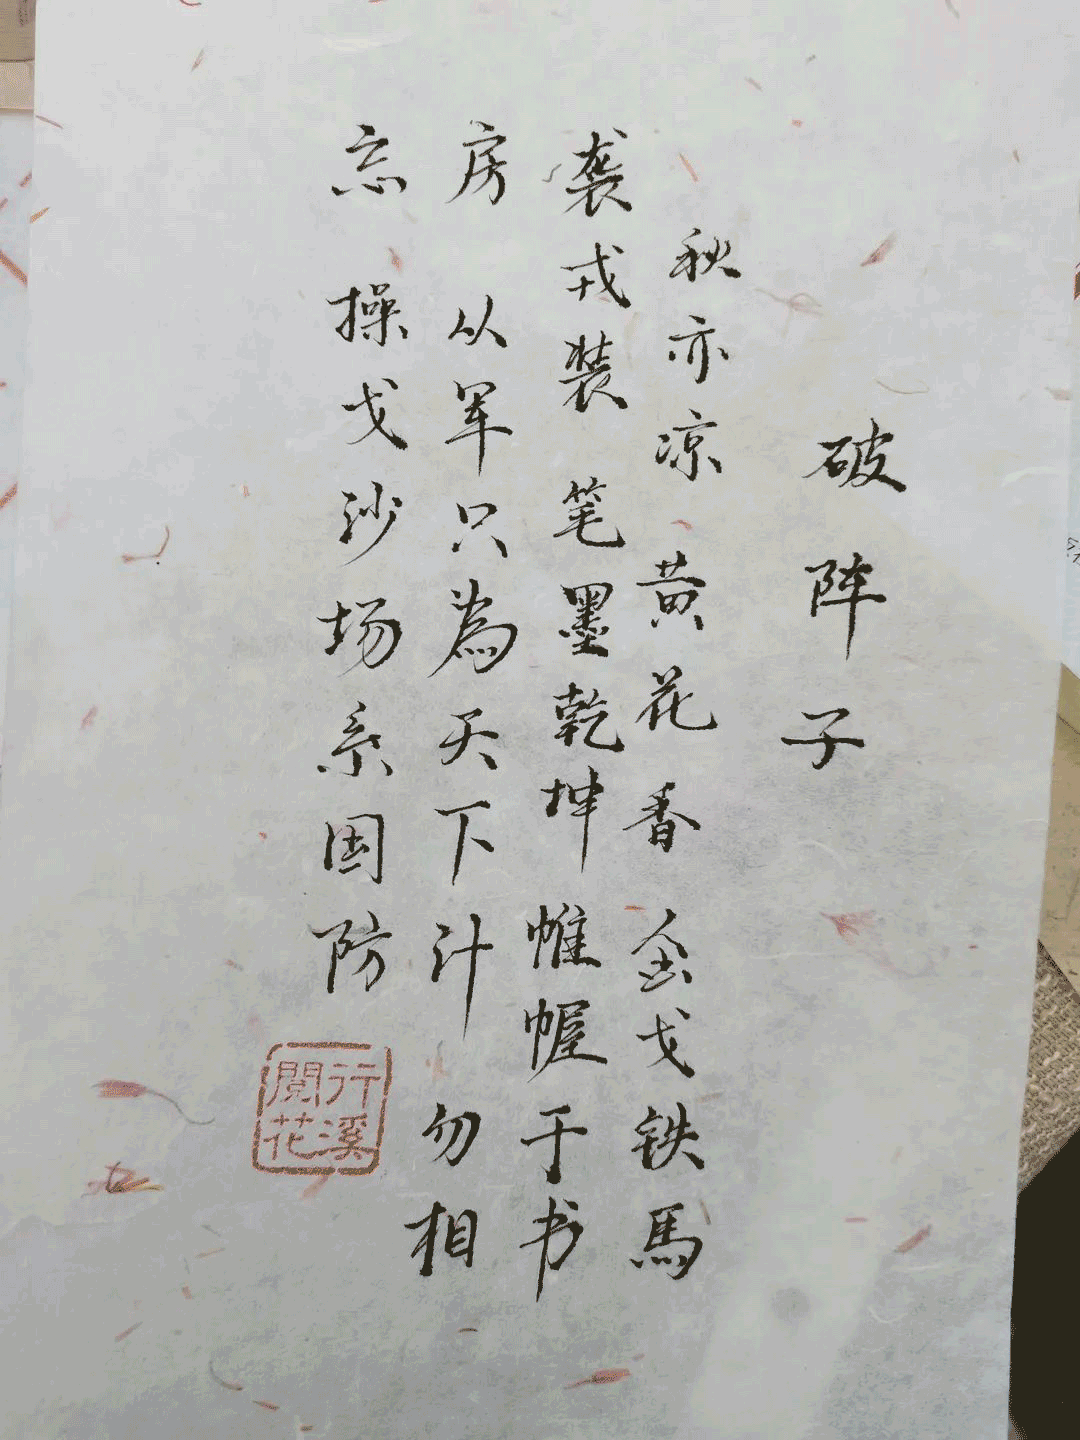 破阵子
秋亦凉 黄花香 金戈铁馬
袭戎装 笔墨乾坤 帷幄于书
房 从军只為天下计 勿相
忘 操戈沙场系国防
行溪
閒花